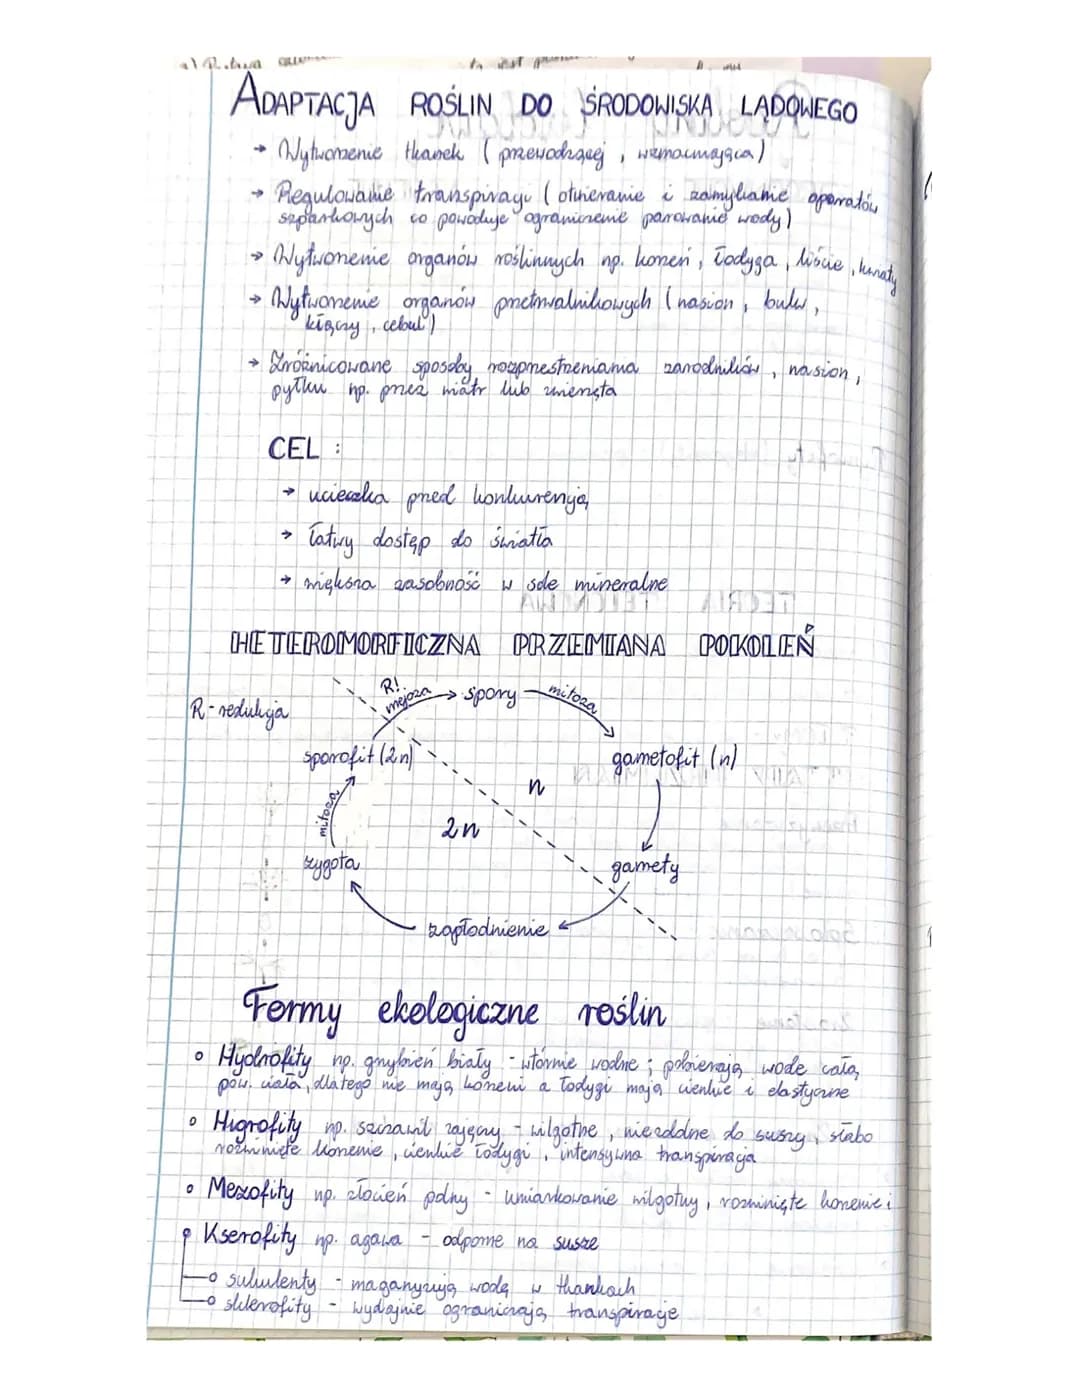 ADAPTACJA ROŚLIN DO ŚRODOWISKA LĄDOWEGO
→ Wytworzenie tkanek (przewodzącej, wzmacniająca)
→ Regulowanie transpiracji (otwieranie i zamykanie aparatów
szparkowych co powoduje ograniczenie parowanie wody)
→ Wytworzenie organów roślinnych np. korzeń, łodyga, liście, kwiaty
→ Wytworzenie organów przetrwalnikowych (nasion, bulw,
kłączy, cebul)
→ Zróżnicowane sposoby rozprzestrzeniania zarodników, nasion,
pyłku np. przez wiatr lub zwierzęta
CEL:
→ ucieczka przed konkurencją
→ łatwy dostęp do światła
→ większa zasobność w sole mineralne
HETEROMORFICZNA PRZEMIANA POKOLEŃ
R - redukcja
R!
mejoza
spory
mitoza
sporofit (2n)
gametofit (n)
n
mitoza
2n
zygota
gamety
zapłodnienie
Formy ekologiczne roślin
o Hydrofity np. grzybień biały - wtórnie wodne; pobierają wode całą
pow. ciała, dlatego nie mają korzeni a łodygi mają cienkie i elastyczne
o Higrofity np. szczawik zajęczy - wilgotne, nieoddne do suszy, słabo
rozwinięte korzenie, cienkie łodygi, intensywna transpiracja
o Mezofity np. złocień polny - umiarkowanie wilgotny, rozwinięte korzenie i
o Kserofity np. agawa - odporne na susze
o sukulenty - magazynują wodę w tkankach
o sklerofity - wydajnie ograniczają transpiracje